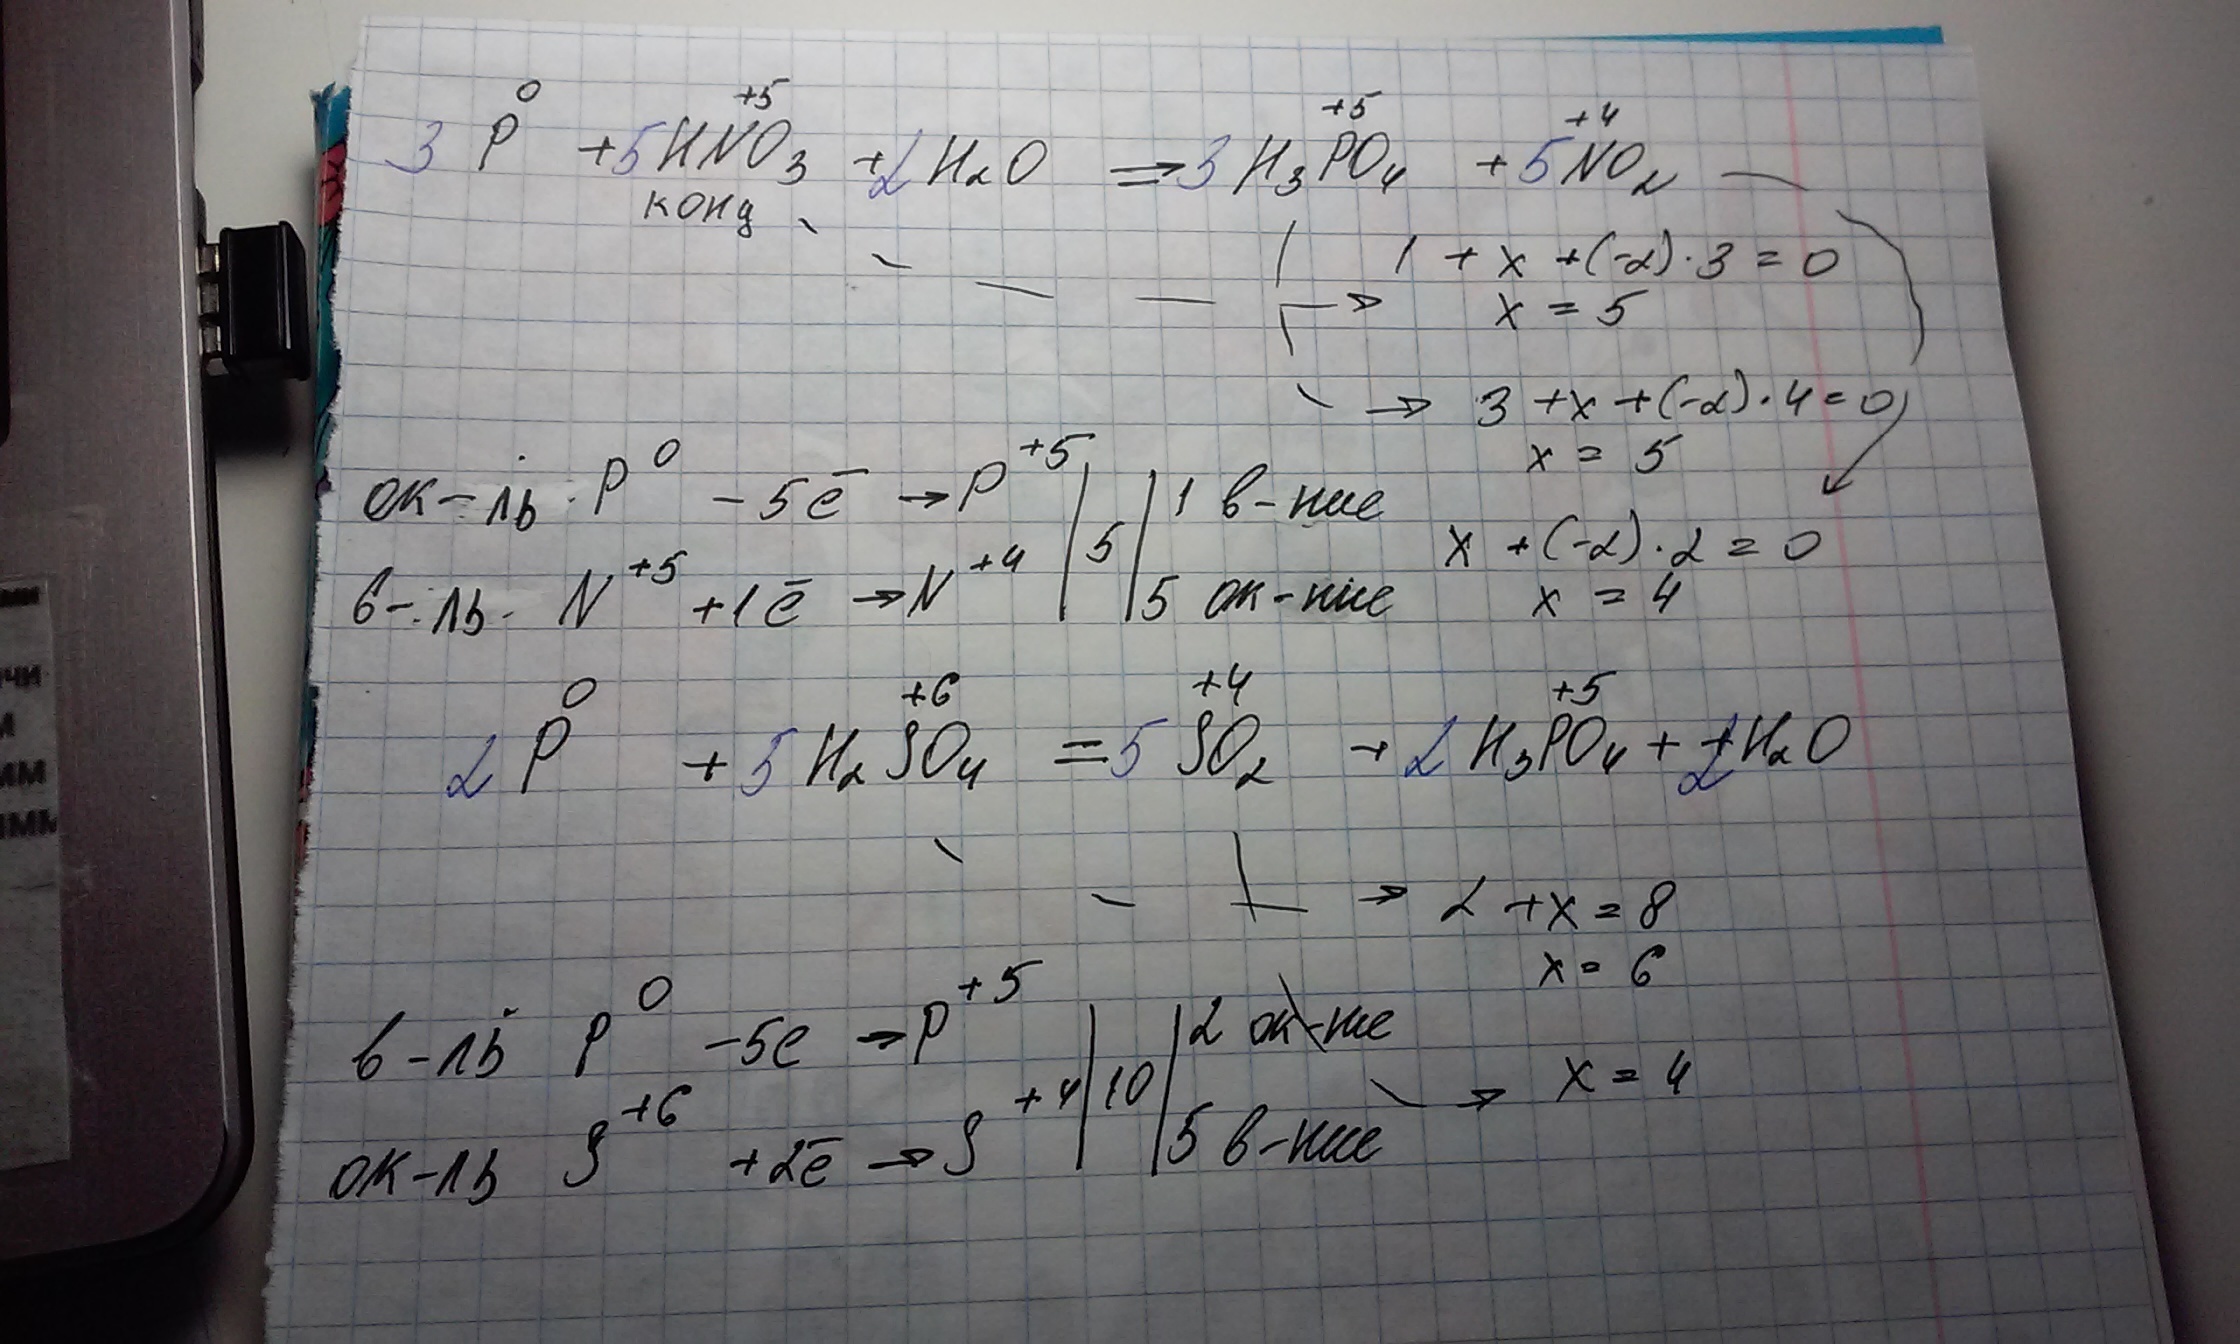 3 P⁰ + 5 HN⁺⁵O₃ + 2 H₂O => 3 H₃P⁺⁵O₄ + 5 N⁺⁴O₂
конц
1 + x + (-2) · 3 = 0
x = 5
3 + x + (-2) · 4 = 0
x = 5
ок-ль P⁰ - 5e̅ → P⁺⁵ | | 1 в-ние
5
в-ль N⁺⁵ + 1e̅ → N⁺⁴ | | 5 ок-ние
x + (-2) · 2 = 0
x = 4
2 P⁰ + 5 H₂S⁺⁶O₄ = 5 S⁺⁴O₂ + 2 H₃P⁺⁵O₄ + 2 H₂O
2 + x = 8
x = 6
в-ль P⁰ - 5e → P⁺⁵ | | 2 ок-ние
10
ок-ль S⁺⁶ + 2e̅ → S⁺⁴ | | 5 в-ние
x = 4
мм